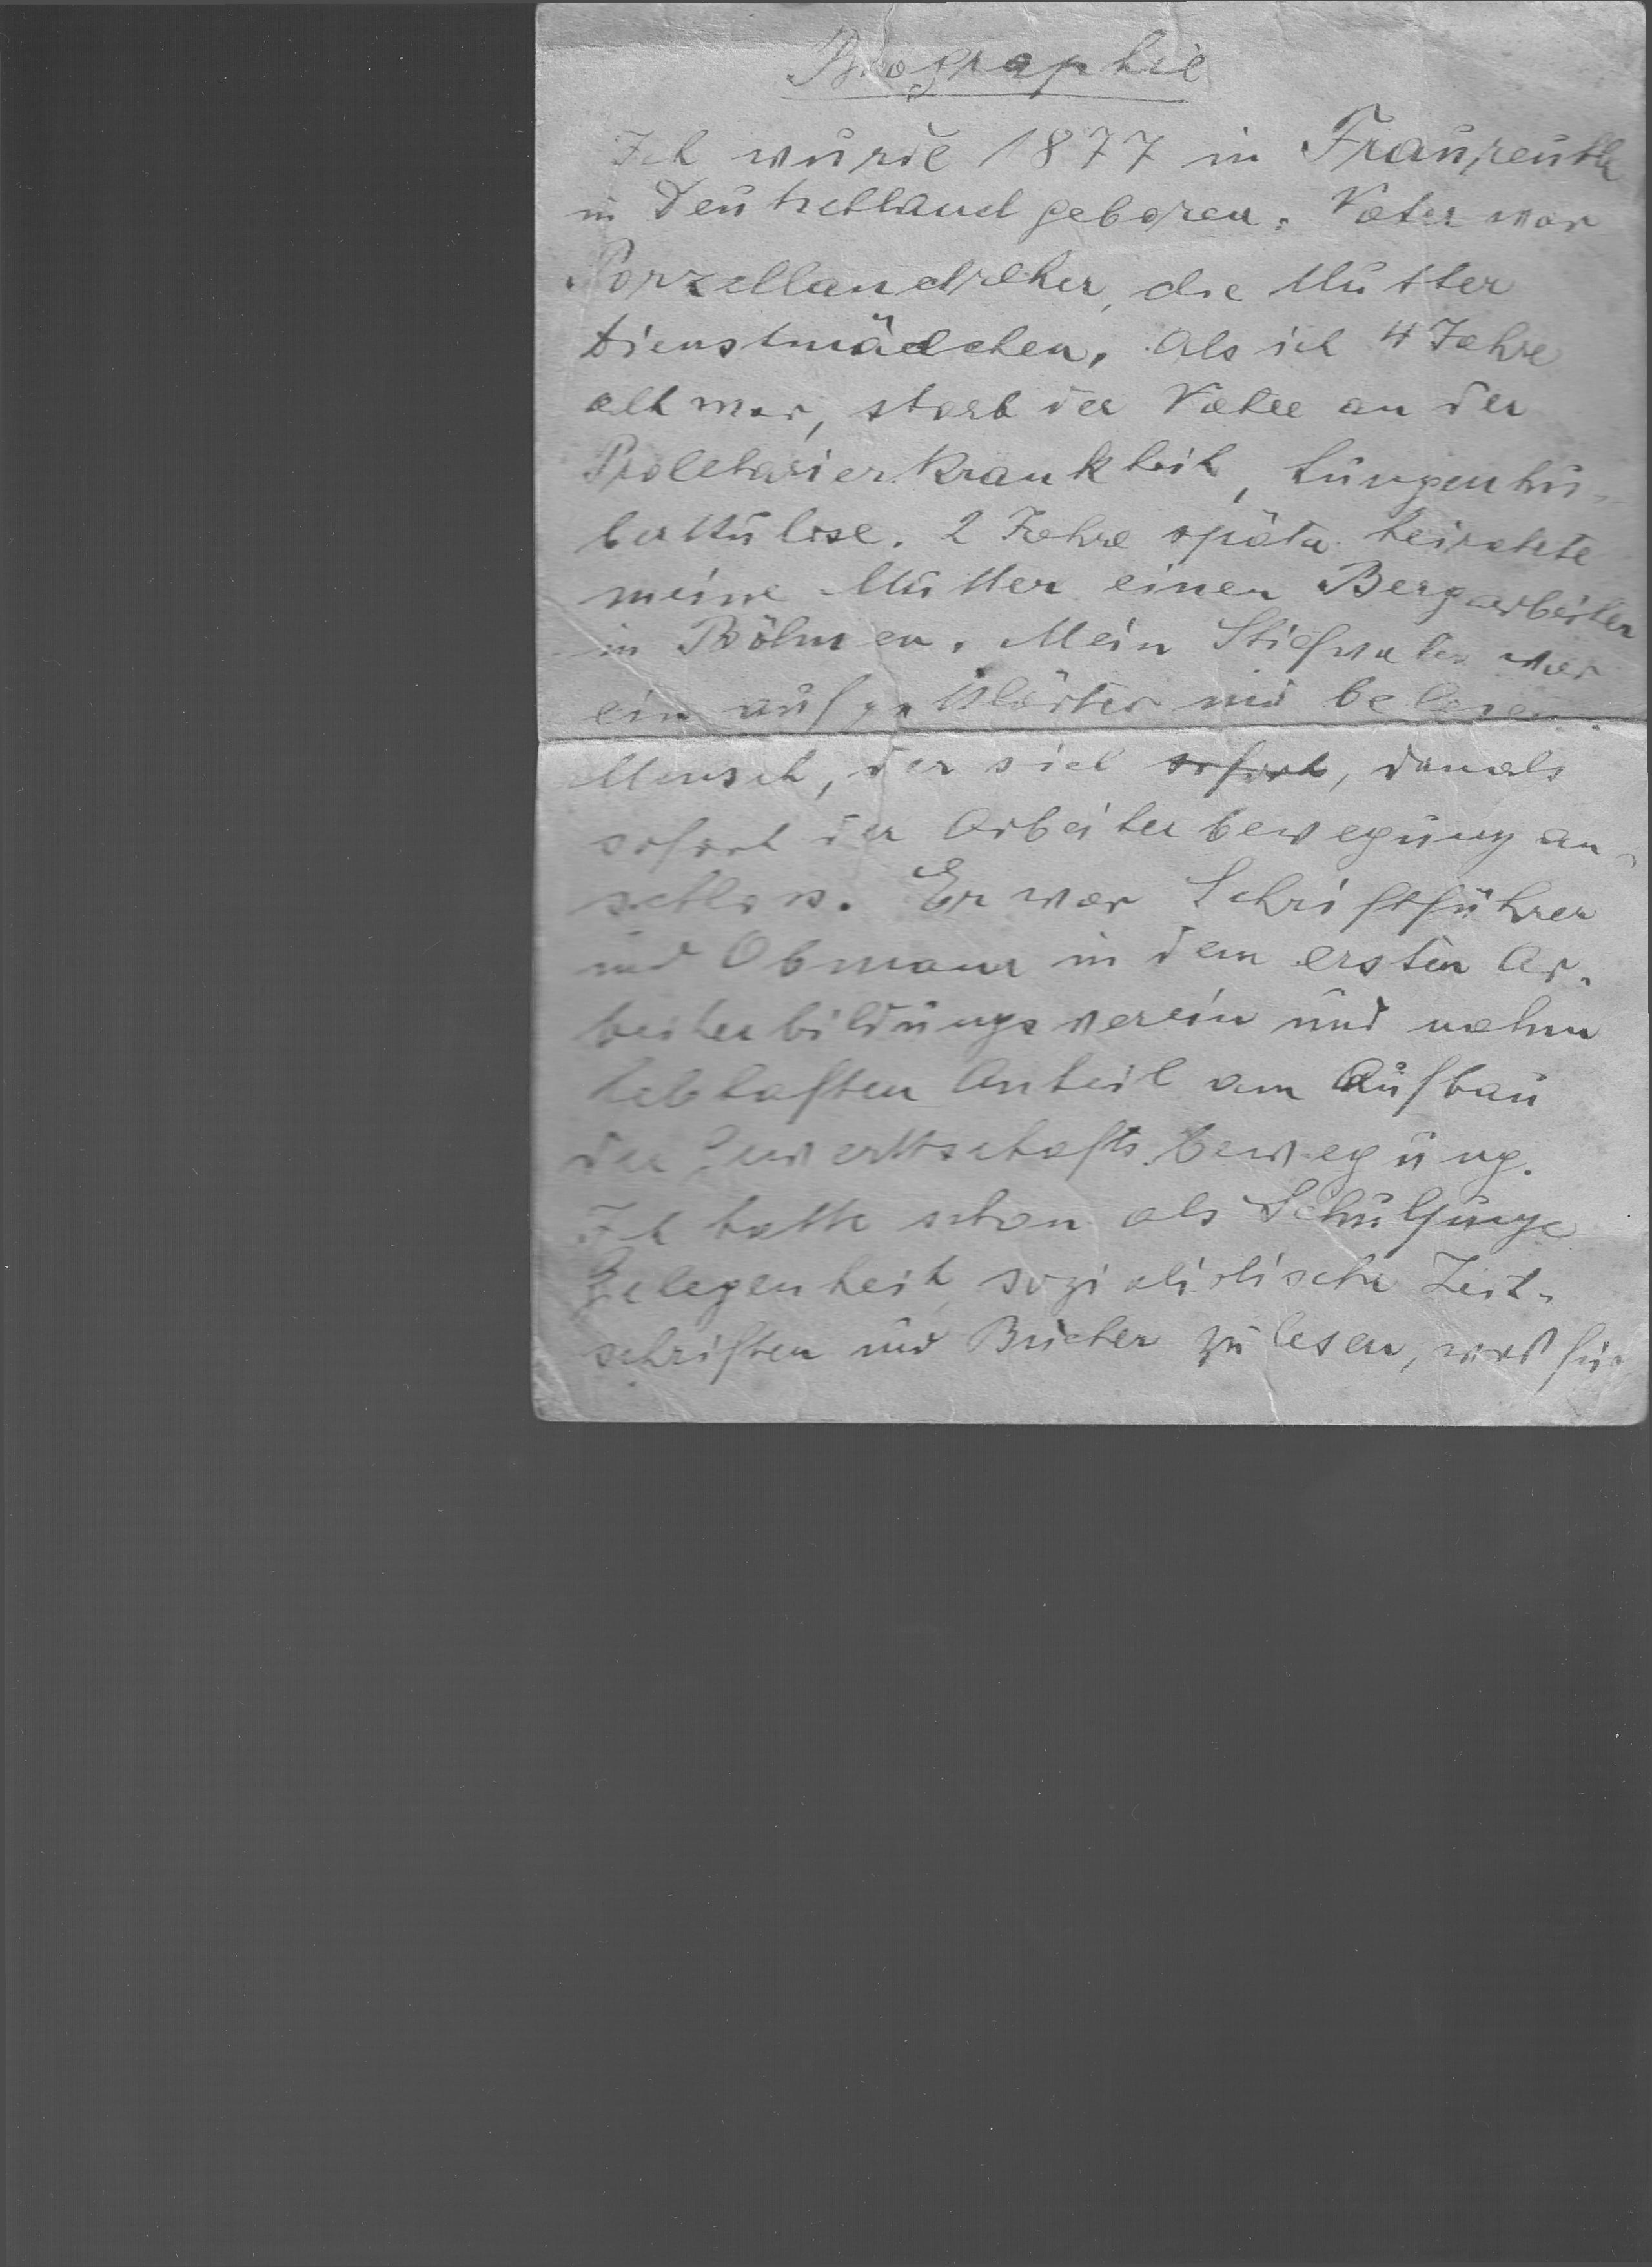 Biographie
Ich wurde 1877 in Fraureuth
in Deutschland geboren. Vater war
Porzellandreher, die Mutter
Dienstmädchen. Als ich 4 Jahre
alt war, starb der Vater an der
Proletarierkrankheit, Lungentu-
berkulose. 2 Jahre später heiratete
meine Mutter einen Bergarbeiter
in Böhmen. Mein Stiefvater war
ein aufgeklärter und belesener
Mensch, der sich sofort, damals
sofort der Arbeiterbewegung an-
schloss. Er war Schriftführer
und Obmann in dem ersten Ar-
beiterbildungsverein und nahm
lebhaften Anteil am Aufbau
der Gewerkschaftsbewegung.
Ich hatte schon als Schuljunge
Gelegenheit sozialistische Zeit-
schriften und Bücher zu lesen, was für